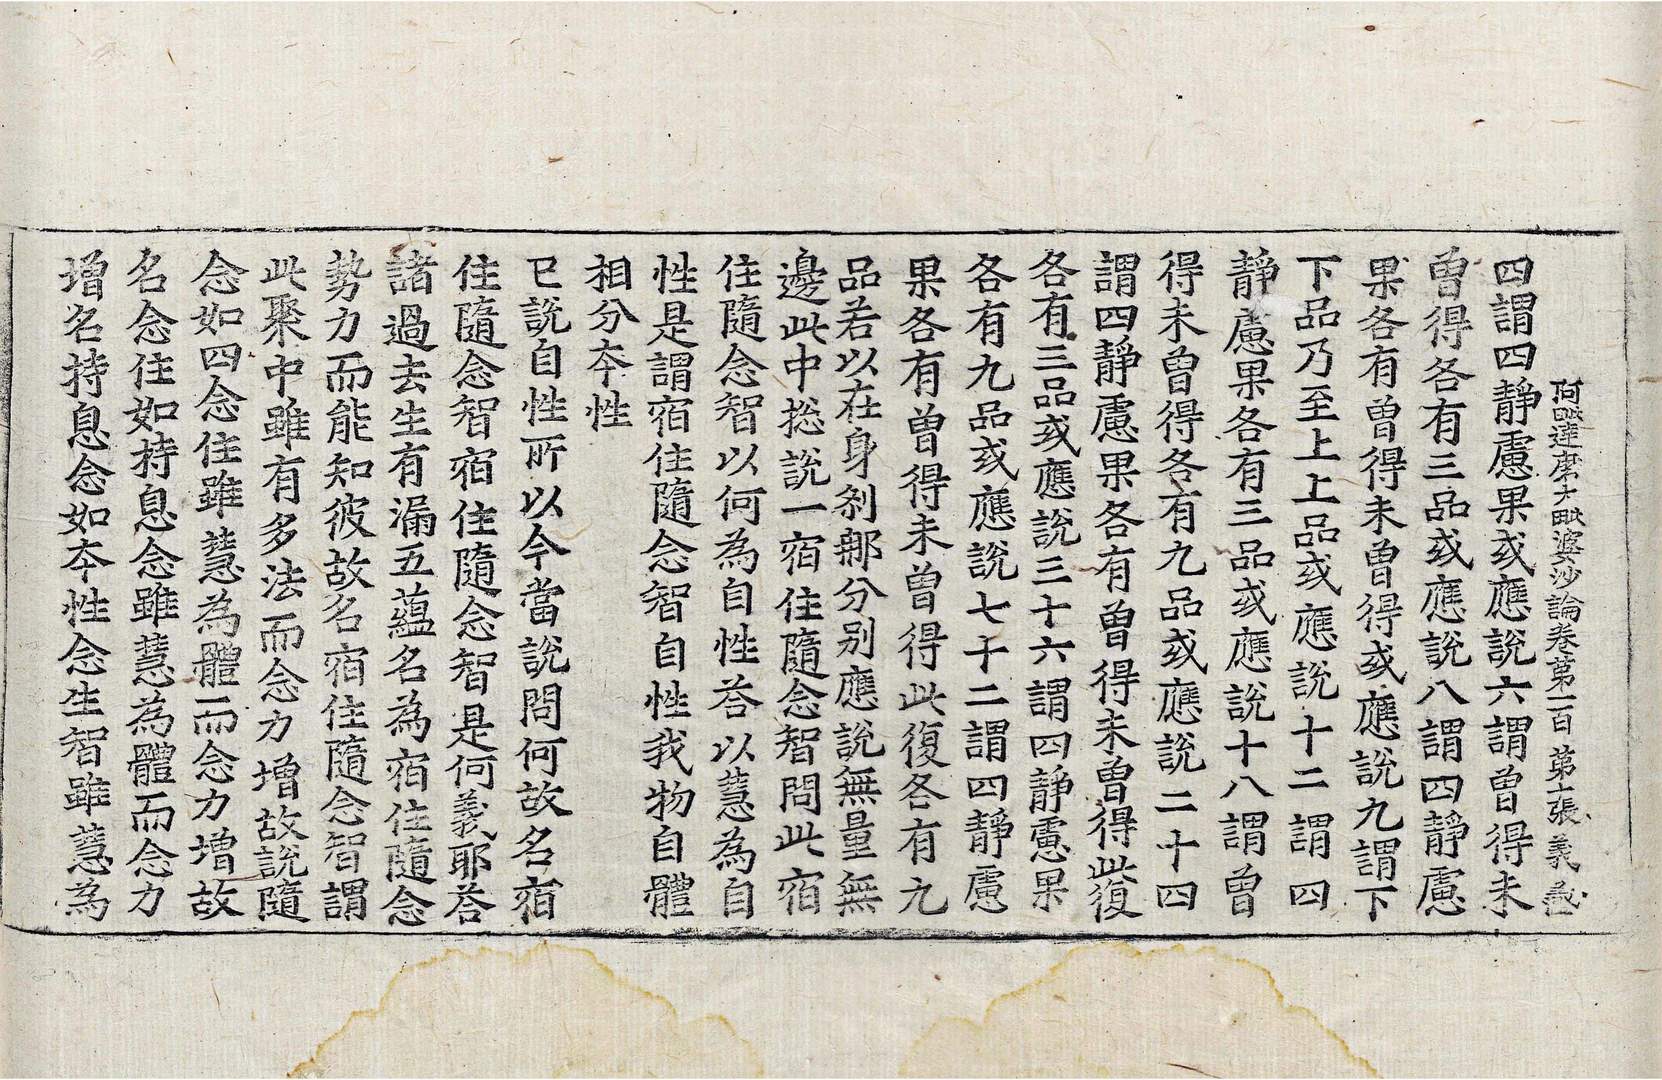 阿毗達磨大毗婆沙論卷第一百 第十張 義
四謂四靜慮果或應說六謂曾得未
曾得各有三品或應說八謂四靜慮
果各有曾得未曾得或應說九謂下
下品乃至上上品或應說十二謂四
靜慮果各有三品或應說十八謂曾
得未曾得各有九品或應說二十四
謂四靜慮果各有曾得未曾得此復
各有三品或應說三十六謂四靜慮果
各有九品或應說七十二謂四靜慮
果各有曾得未曾得此復各有九
品若以在身剎那分別應說無量無
邊此中捴說一宿住隨念智問此宿
住隨念智以何為自性荅以慧為自
性是謂宿住隨念智自性我物自體
相分夲性
已說自性所以今當說問何故名宿
住隨念智宿住隨念智是何義耶荅
諸過去生有漏五蘊名為宿住隨念
勢力而能知彼故名宿住隨念智謂
此聚中雖有多法而念力增故說隨
念如四念住雖慧為體而念力增故
名念住如持息念雖慧為體而念力
增名持息念如夲性念生智雖慧為